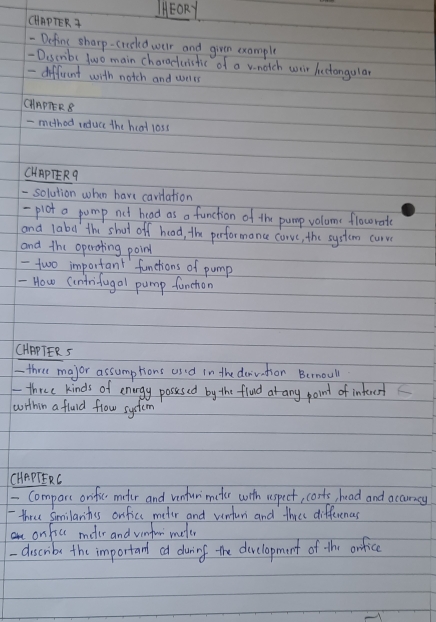 THEORY
CHAPTER 7
- Define sharp-crested weir and given example
- Describe two main characteristic of a v-notch weir/rectangular
- diffirent with notch and weirs
CHAPTER 8
- method reduce the heat loss
CHAPTER 9
- solution when have cavitation
- plot a pump net head as a function of the pump volume flowrate
and label the shut off head, the performance curve, the system curve
and the operating point
- two important functions of pump
- How Centrifugal pump function
CHAPTER 5
- three major assumptions used in the derivation Bernoulli
- three kinds of energy possesed by the fluid at any point of interest
within a fluid flow system
CHAPTER 6
- Compare orifice meter and venturi meter with respect, costs, head and accuracy
- three similarities orifice meter and venturi and three differences
orifice meter and venturi meter
- describe the important cd during the development of the orifice